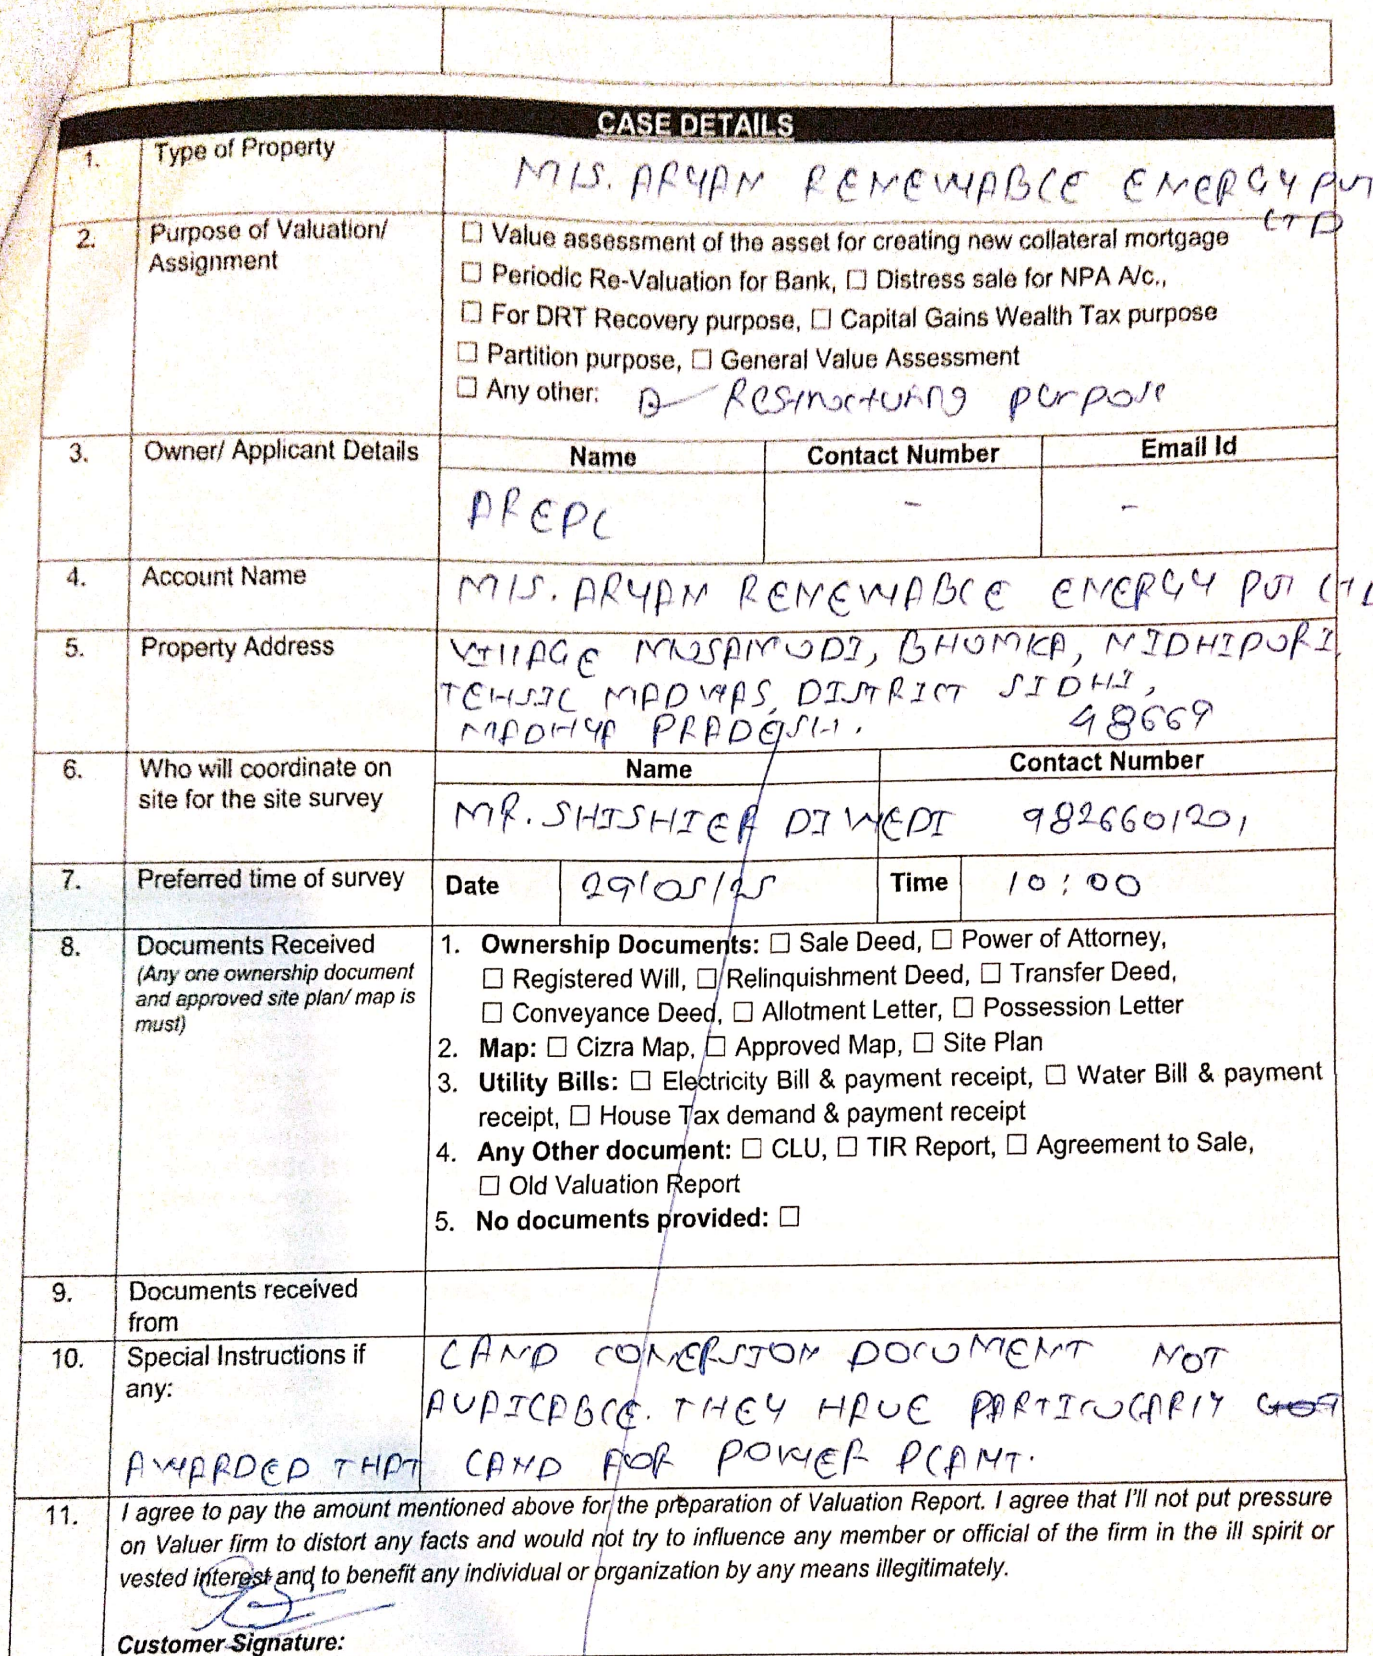 CASE DETAILS
1. Type of Property M/S. ARYAN RENEWABLE ENERGY PVT LTD
2. Purpose of Valuation/ Assignment
☐ Value assessment of the asset for creating new collateral mortgage
☐ Periodic Re-Valuation for Bank, ☐ Distress sale for NPA A/c.,
☐ For DRT Recovery purpose, ☐ Capital Gains Wealth Tax purpose
☐ Partition purpose, ☐ General Value Assessment
☐ Any other: Restructuring purpose
3. Owner/ Applicant Details Name Contact Number Email Id
AREPL - -
4. Account Name M/S. ARYAN RENEWABLE ENERGY PVT LTD
5. Property Address VILLAGE MUSAMUDI, BHUMKA, NIDHIPURI,
TEHSIL MADWAS, DISTRICT SIDHI,
MADHYA PRADESH. 48669
6. Who will coordinate on site for the site survey Name Contact Number
MR. SHISHIER DIWEDI 9826601201
7. Preferred time of survey Date 29/05/25 Time 10:00
8. Documents Received
(Any one ownership document and approved site plan/ map is must)
1. Ownership Documents: ☐ Sale Deed, ☐ Power of Attorney,
☐ Registered Will, ☐ Relinquishment Deed, ☐ Transfer Deed,
☐ Conveyance Deed, ☐ Allotment Letter, ☐ Possession Letter
2. Map: ☐ Cizra Map, ☐ Approved Map, ☐ Site Plan
3. Utility Bills: ☐ Electricity Bill & payment receipt, ☐ Water Bill & payment
receipt, ☐ House Tax demand & payment receipt
4. Any Other document: ☐ CLU, ☐ TIR Report, ☐ Agreement to Sale,
☐ Old Valuation Report
5. No documents provided: ☐
9. Documents received from
10. Special Instructions if any: LAND CONVERSION DOCUMENT NOT
AVAILABLE. THEY HAVE PARTICULARLY
AWARDED THAT LAND FOR POWER PLANT.
11. I agree to pay the amount mentioned above for the preparation of Valuation Report. I agree that I'll not put pressure
on Valuer firm to distort any facts and would not try to influence any member or official of the firm in the ill spirit or
vested interest and to benefit any individual or organization by any means illegitimately.
Customer Signature: